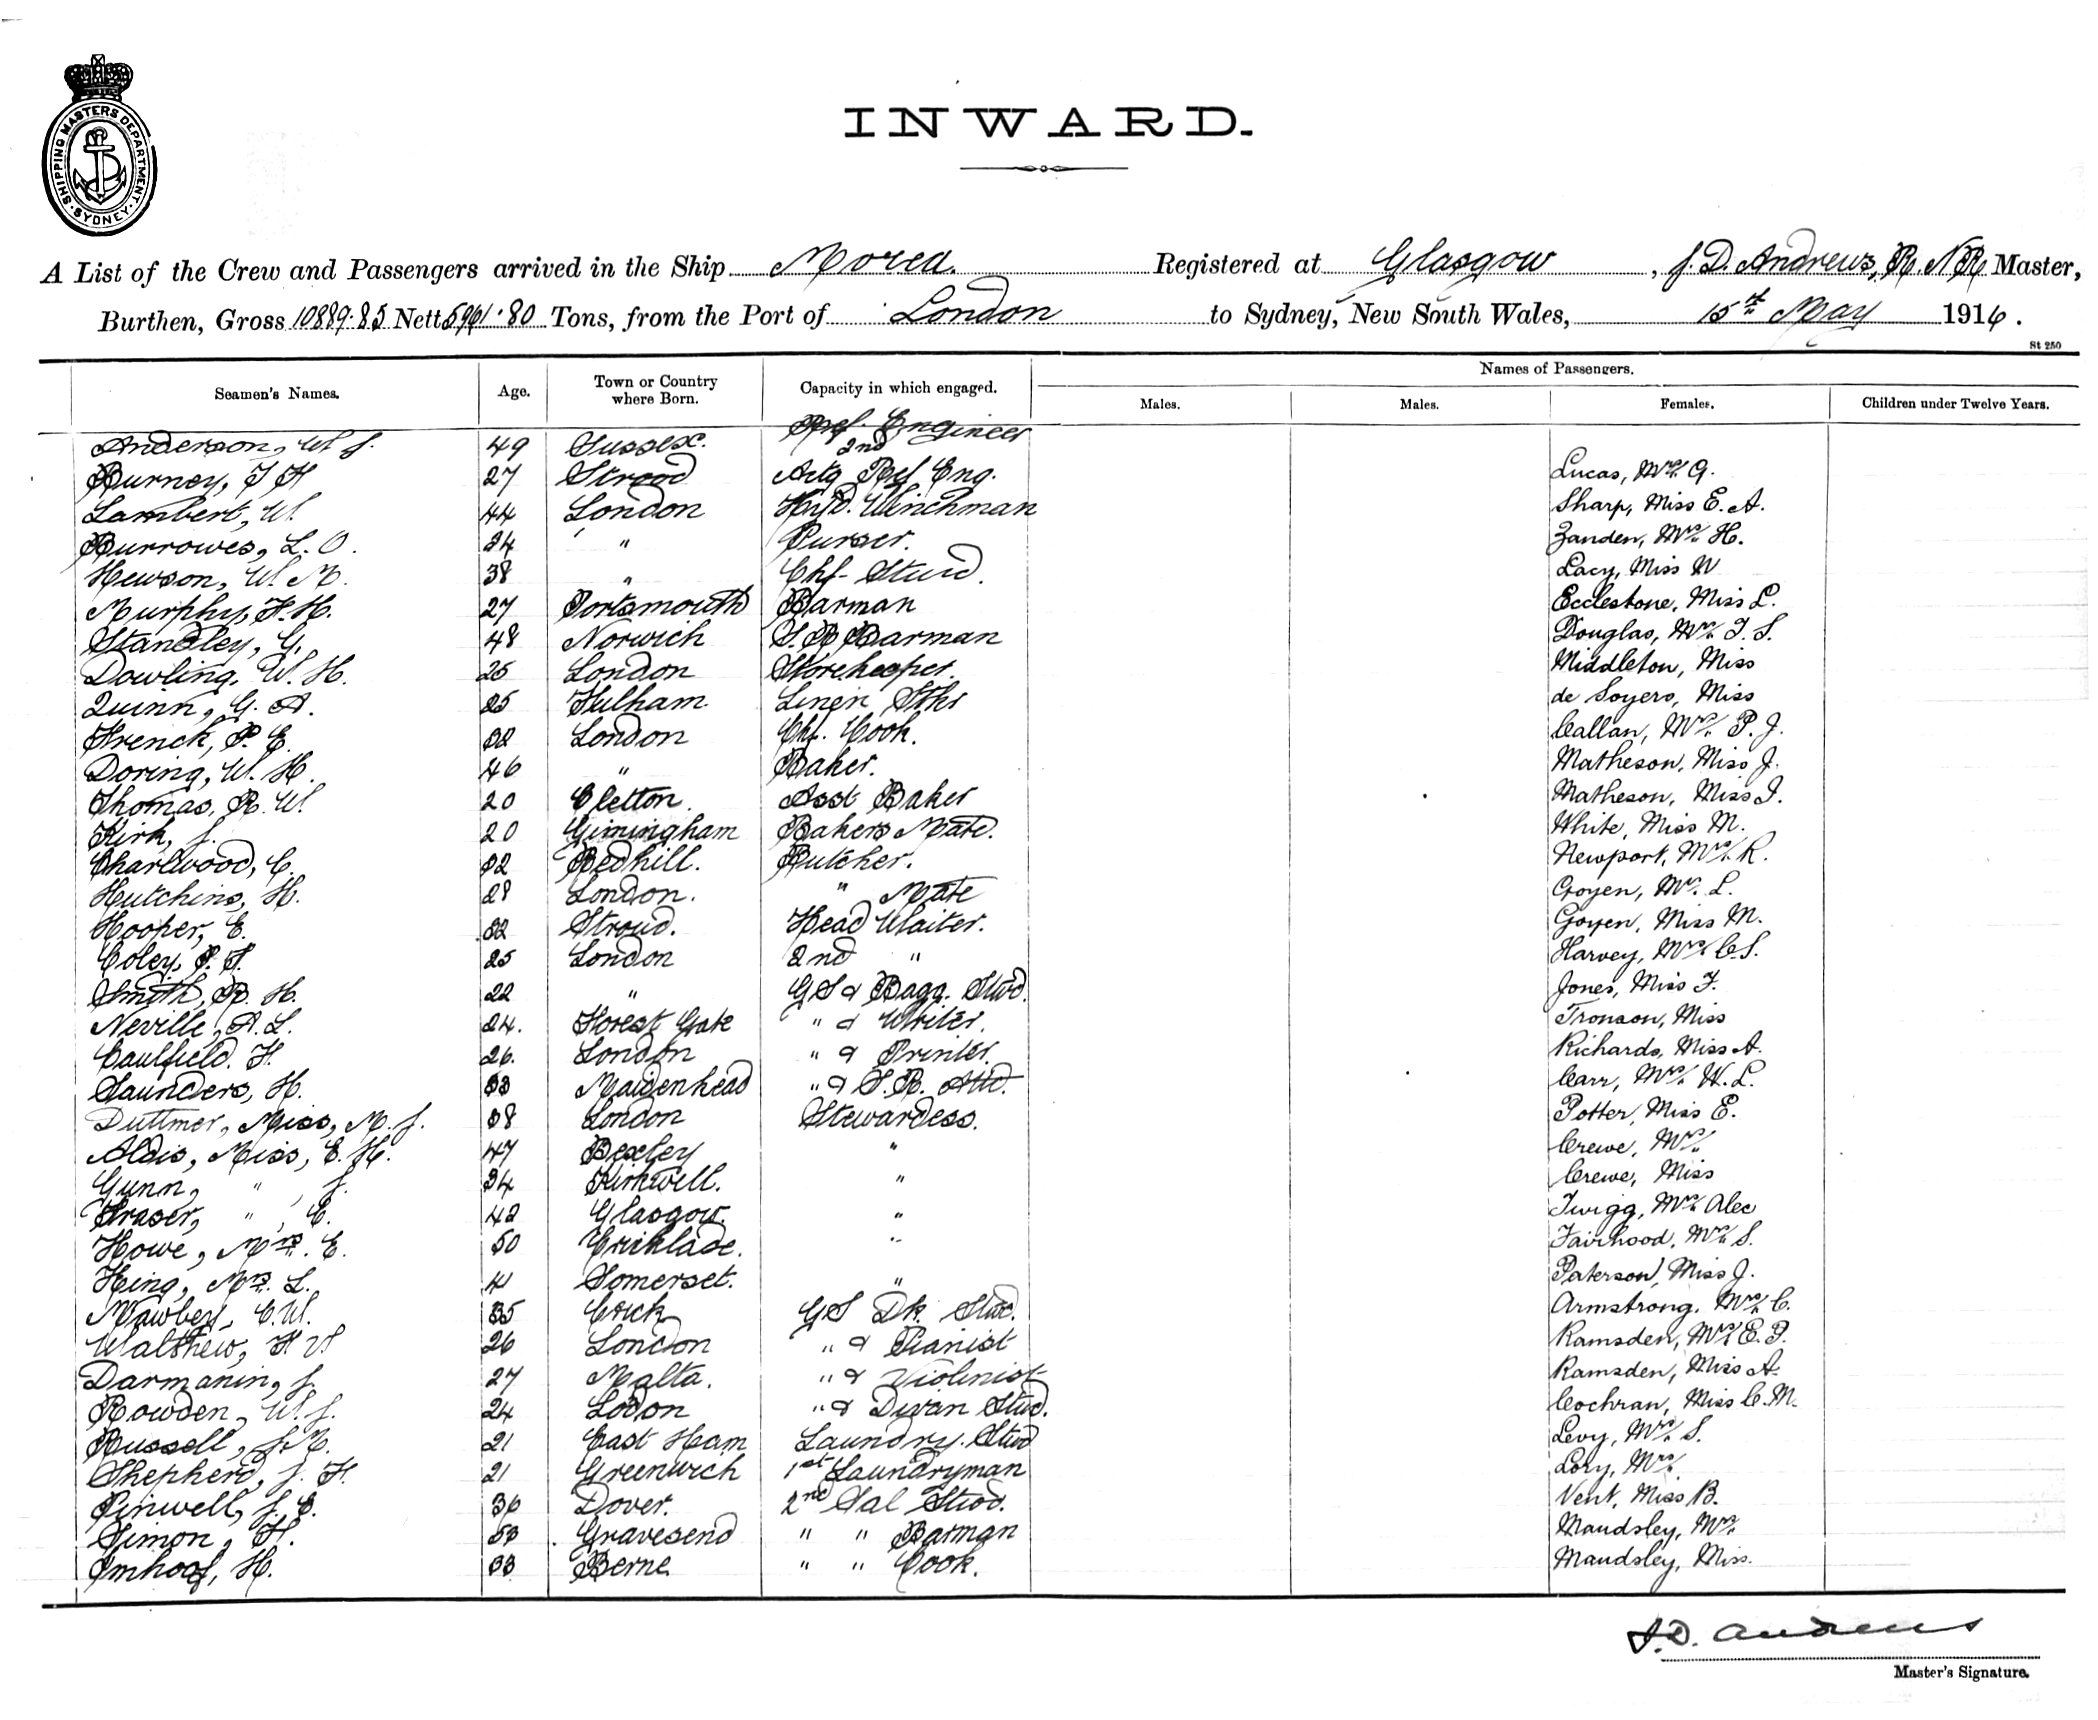 SHIPPING MASTERS DEPARTMENT
SYDNEY
INWARD.
A List of the Crew and Passengers arrived in the Ship Morea. Registered at Glasgow, J. D. Andrews, R.N.R. Master,
Burthen, Gross 10889.85 Nett 5961.80 Tons, from the Port of London to Sydney, New South Wales, 15th May 1916.
St 250
Seamen's Names. Age. Town or Country where Born. Capacity in which engaged. Names of Passengers.
Males. Males. Females. Children under Twelve Years.
Anderson, W J. 49 Sussex. Ref. Engineer
Burney, T H 27 Strood 2nd Actg Ref Eng. Lucas, Mrs. G.
Lambert, W. 44 London Hyd. Winchman Sharp, Miss E. A.
Burrowes, L. O. 34 " Purser. Zanden, Mrs. H.
Hewson, W. M. 38 " Chf. Stwd. Lacy, Miss W
Murphy, F. H. 27 Portsmouth Barman Ecclestone, Miss L.
Standley, G. 48 Norwich S. R Barman Douglas, Mrs. T. S.
Dowling, W. H. 25 London Storekeeper. Middleton, Miss
Quinn, G. A. 25 Fulham Linen Sthr de Soyero, Miss
French, P. E. 32 London Chf. Cook. Callan, Mrs. P. J.
Doring, W. H. 46 " Baker. Matheson, Miss J.
Thomas, R. W. 20 Cletton. Asst Baker Matheson, Miss I.
Kirk, J. 20 Gimingham Bakers Mate. White, Miss M.
Charlwood, C. 32 Redhill. Butcher. Newport, Mrs. R.
Hutchins, H. 28 London. " Mate Goyen, Mrs. L.
Hooper, E. 32 Stroud. Head Waiter. Goyen, Miss M.
Coley, P. T. 25 London 2nd " Harvey, Mrs. C. S.
Smith, R. H. 22 " GS & Bagg. Stwd. Jones, Miss F.
Neville, A. L. 24. Forest Gate " & Writer. Tronson, Miss
Caulfield. F. 26. London " & Printer. Richards, Miss A.
Saunders, H. 33 Maidenhead " & S. R. Attd. Carr, Mrs. W. L.
Duttmer, Miss, M. J. 38 London Stewardess. Potter, Miss E.
Aldis, Miss, E. H. 47 Bexley " Crewe, Mrs.
Gunn, " , J. 34 Kirkwell. " Crewe, Miss
Fraser, " , C. 42 Glasgow. " Twigg, Mrs. Alec
Howe, Mrs. E. 50 Cricklade. " Fairhood, Mrs. S.
King, Mrs. L. 41 Somerset. " Paterson, Miss J.
Mawbey, C. W. 35 Crick GS Dk. Stwd. Armstrong, Mrs. C.
Walthew, F W 26 London " & Pianist Ramsden, Mrs. E. P.
Darmanin, J. 27 Malta. " & Violinist Ramsden, Miss A.
Rowden, W. J. 24 Lodon " & Divan Stwd. Cochran, Miss C. M.
Russell, J. M. 21 East Ham Laundry. Stwd Levy, Mrs. S.
Shepherd, J. F. 21 Greenwich 1st Laundryman Lory, Mrs.
Pinwell, J. E. 36 Dover. 2nd Sal Stwd. Vent, Miss B.
Simon, F. 53 Gravesend " " Barman Maudsley, Mrs.
Imhoof, H. 33 Berne " " Cook. Maudsley, Miss.
J.D. Andrews
Master's Signature.